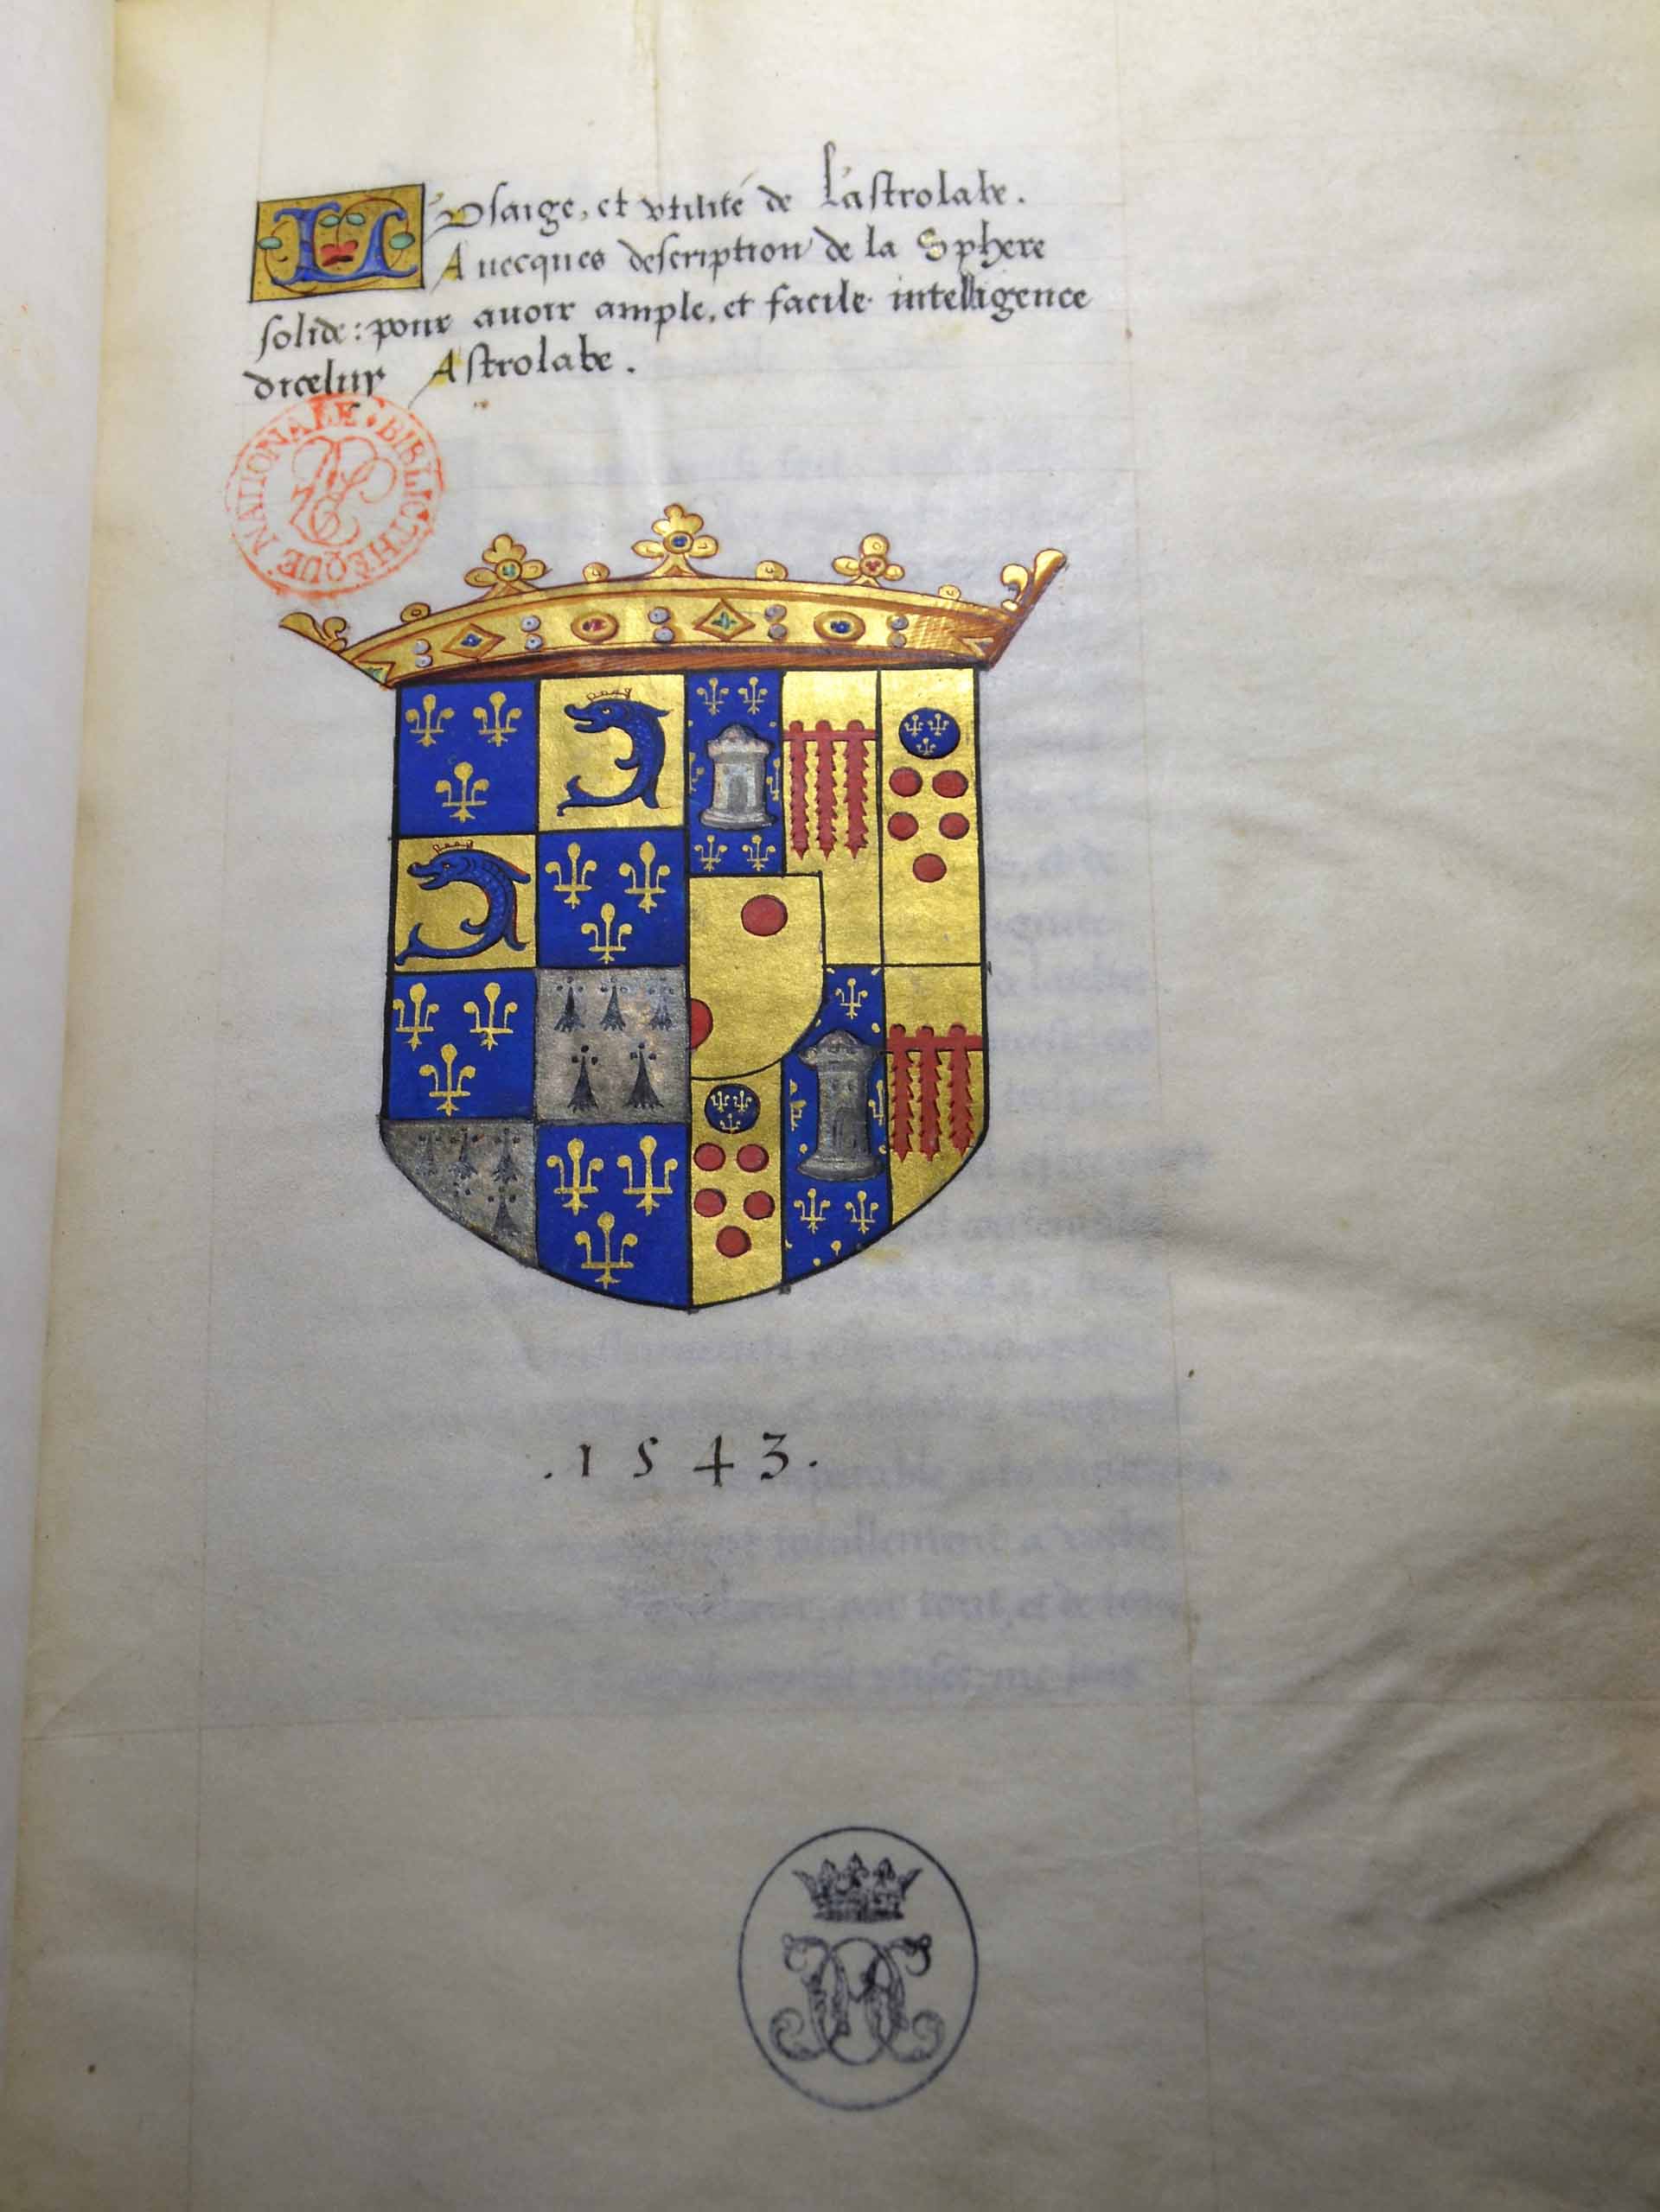 L'Vsaige, et vtilité de L'astrolabe.
Auecques description de la Sphere
solide: pour auoir ample, et facile intelligence
diceluy Astrolabe.
BIBLIOTHEQUE NATIONALE
.1543.